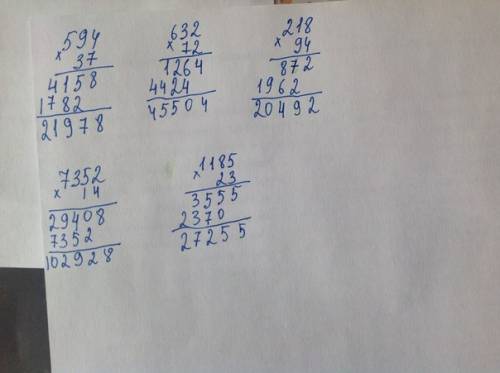 594
× 37
4158
1782
21978
632
× 72
1264
4424
45504
218
× 94
872
1962
20492
7352
× 14
29408
7352
102928
1185
× 23
3555
2370
27255